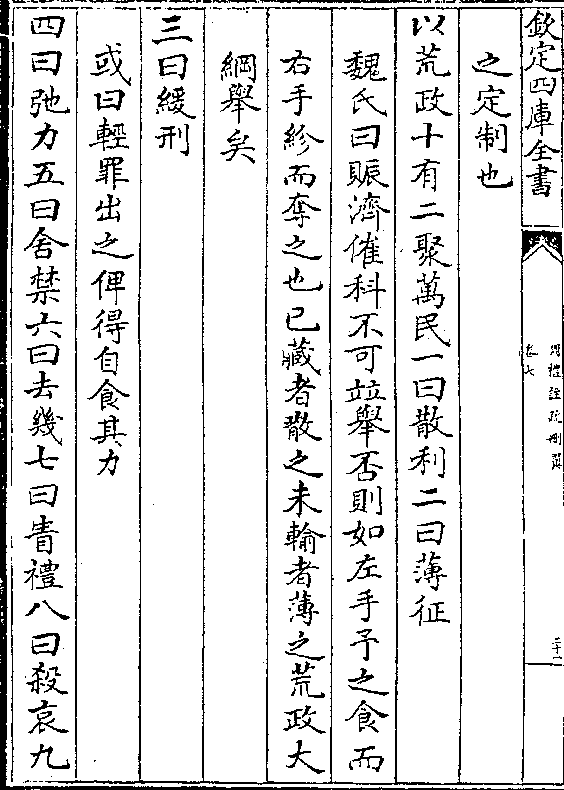 欽定四庫全書
周禮註疏刪翼
卷七
二十一
之定制也
以荒政十有二聚萬民一曰散利二曰薄征
魏氏曰賑濟催科不可竝舉否則如左手予之食而
右手紾而奪之也已藏者散之未輸者薄之荒政大
綱舉矣
三曰緩刑
或曰輕罪出之俾得自食其力
四曰弛力五曰舍禁六曰去幾七曰眚禮八曰殺哀九